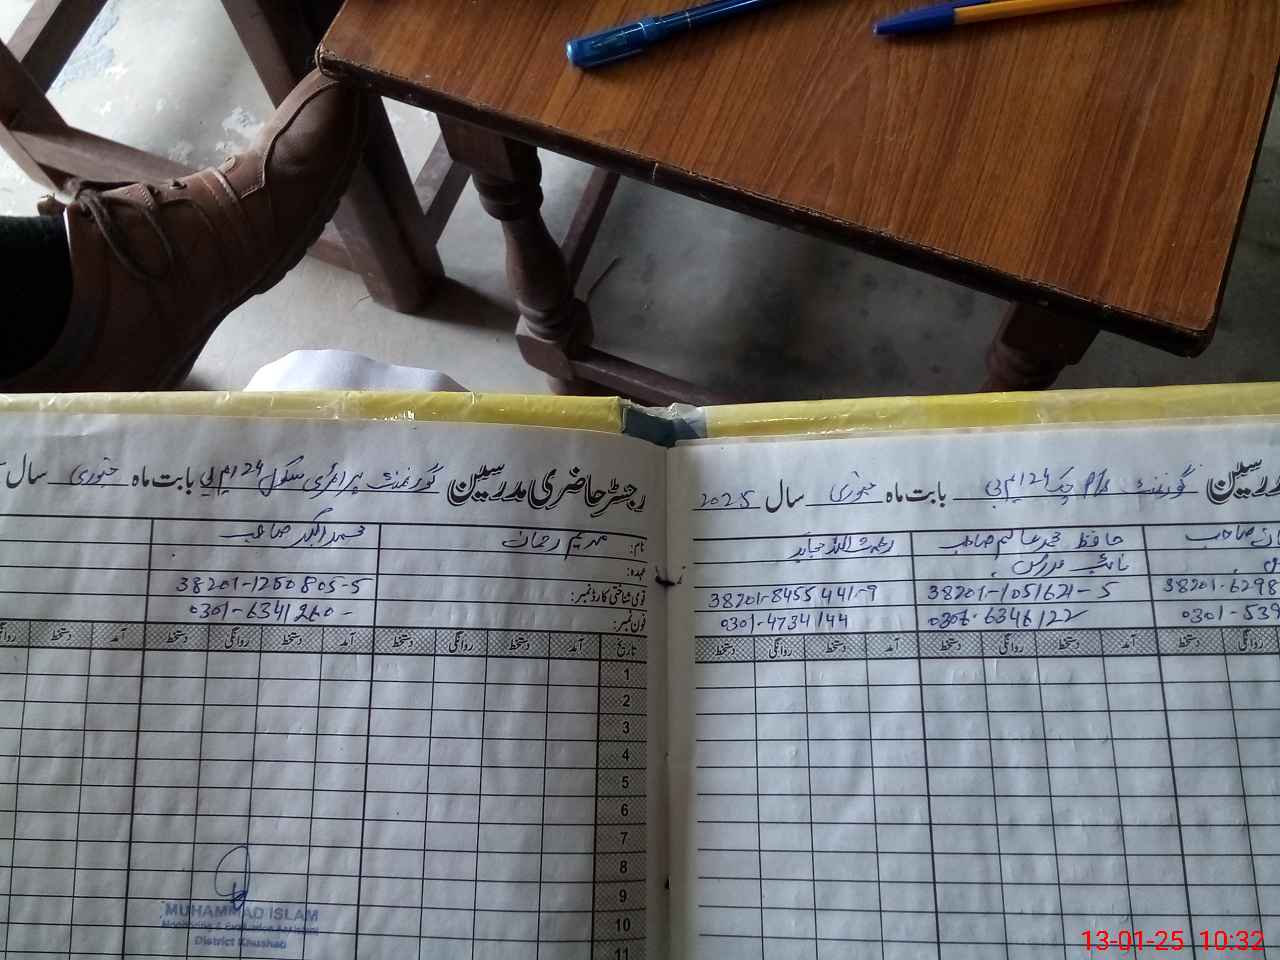 رجسٹر حاضری مدرسین گورنمنٹ پرائمری سکول 124 ایم بی بابت ماہ جنوری سال
نام: مریم رحمان محمد اکبر صاحب
عہدہ:
قومی شناختی کارڈ نمبر: 38201-1250805-5
فون نمبر: 0301-6341260-
تاریخ آمد دستخط روانگی دستخط آمد دستخط روانگی دستخط آمد دستخط روانگی
1
2
3
4
5
6
7
8
9
10
11
MUHAMMAD ISLAM
Monitoring & Evaluation Assistant
District Khushab
مدرسین گورنمنٹ P/S چک 124 ایم بی بابت ماہ جنوری سال 2025
صاحب حافظ محمد عالم صاحب
نائب مدرس
38201-6298 38201-1051621-5 38201-8455441-9
0301-539 0306-6346122 0301-4734144
روانگی دستخط آمد دستخط روانگی دستخط آمد دستخط روانگی دستخط
13-01-25 10:32